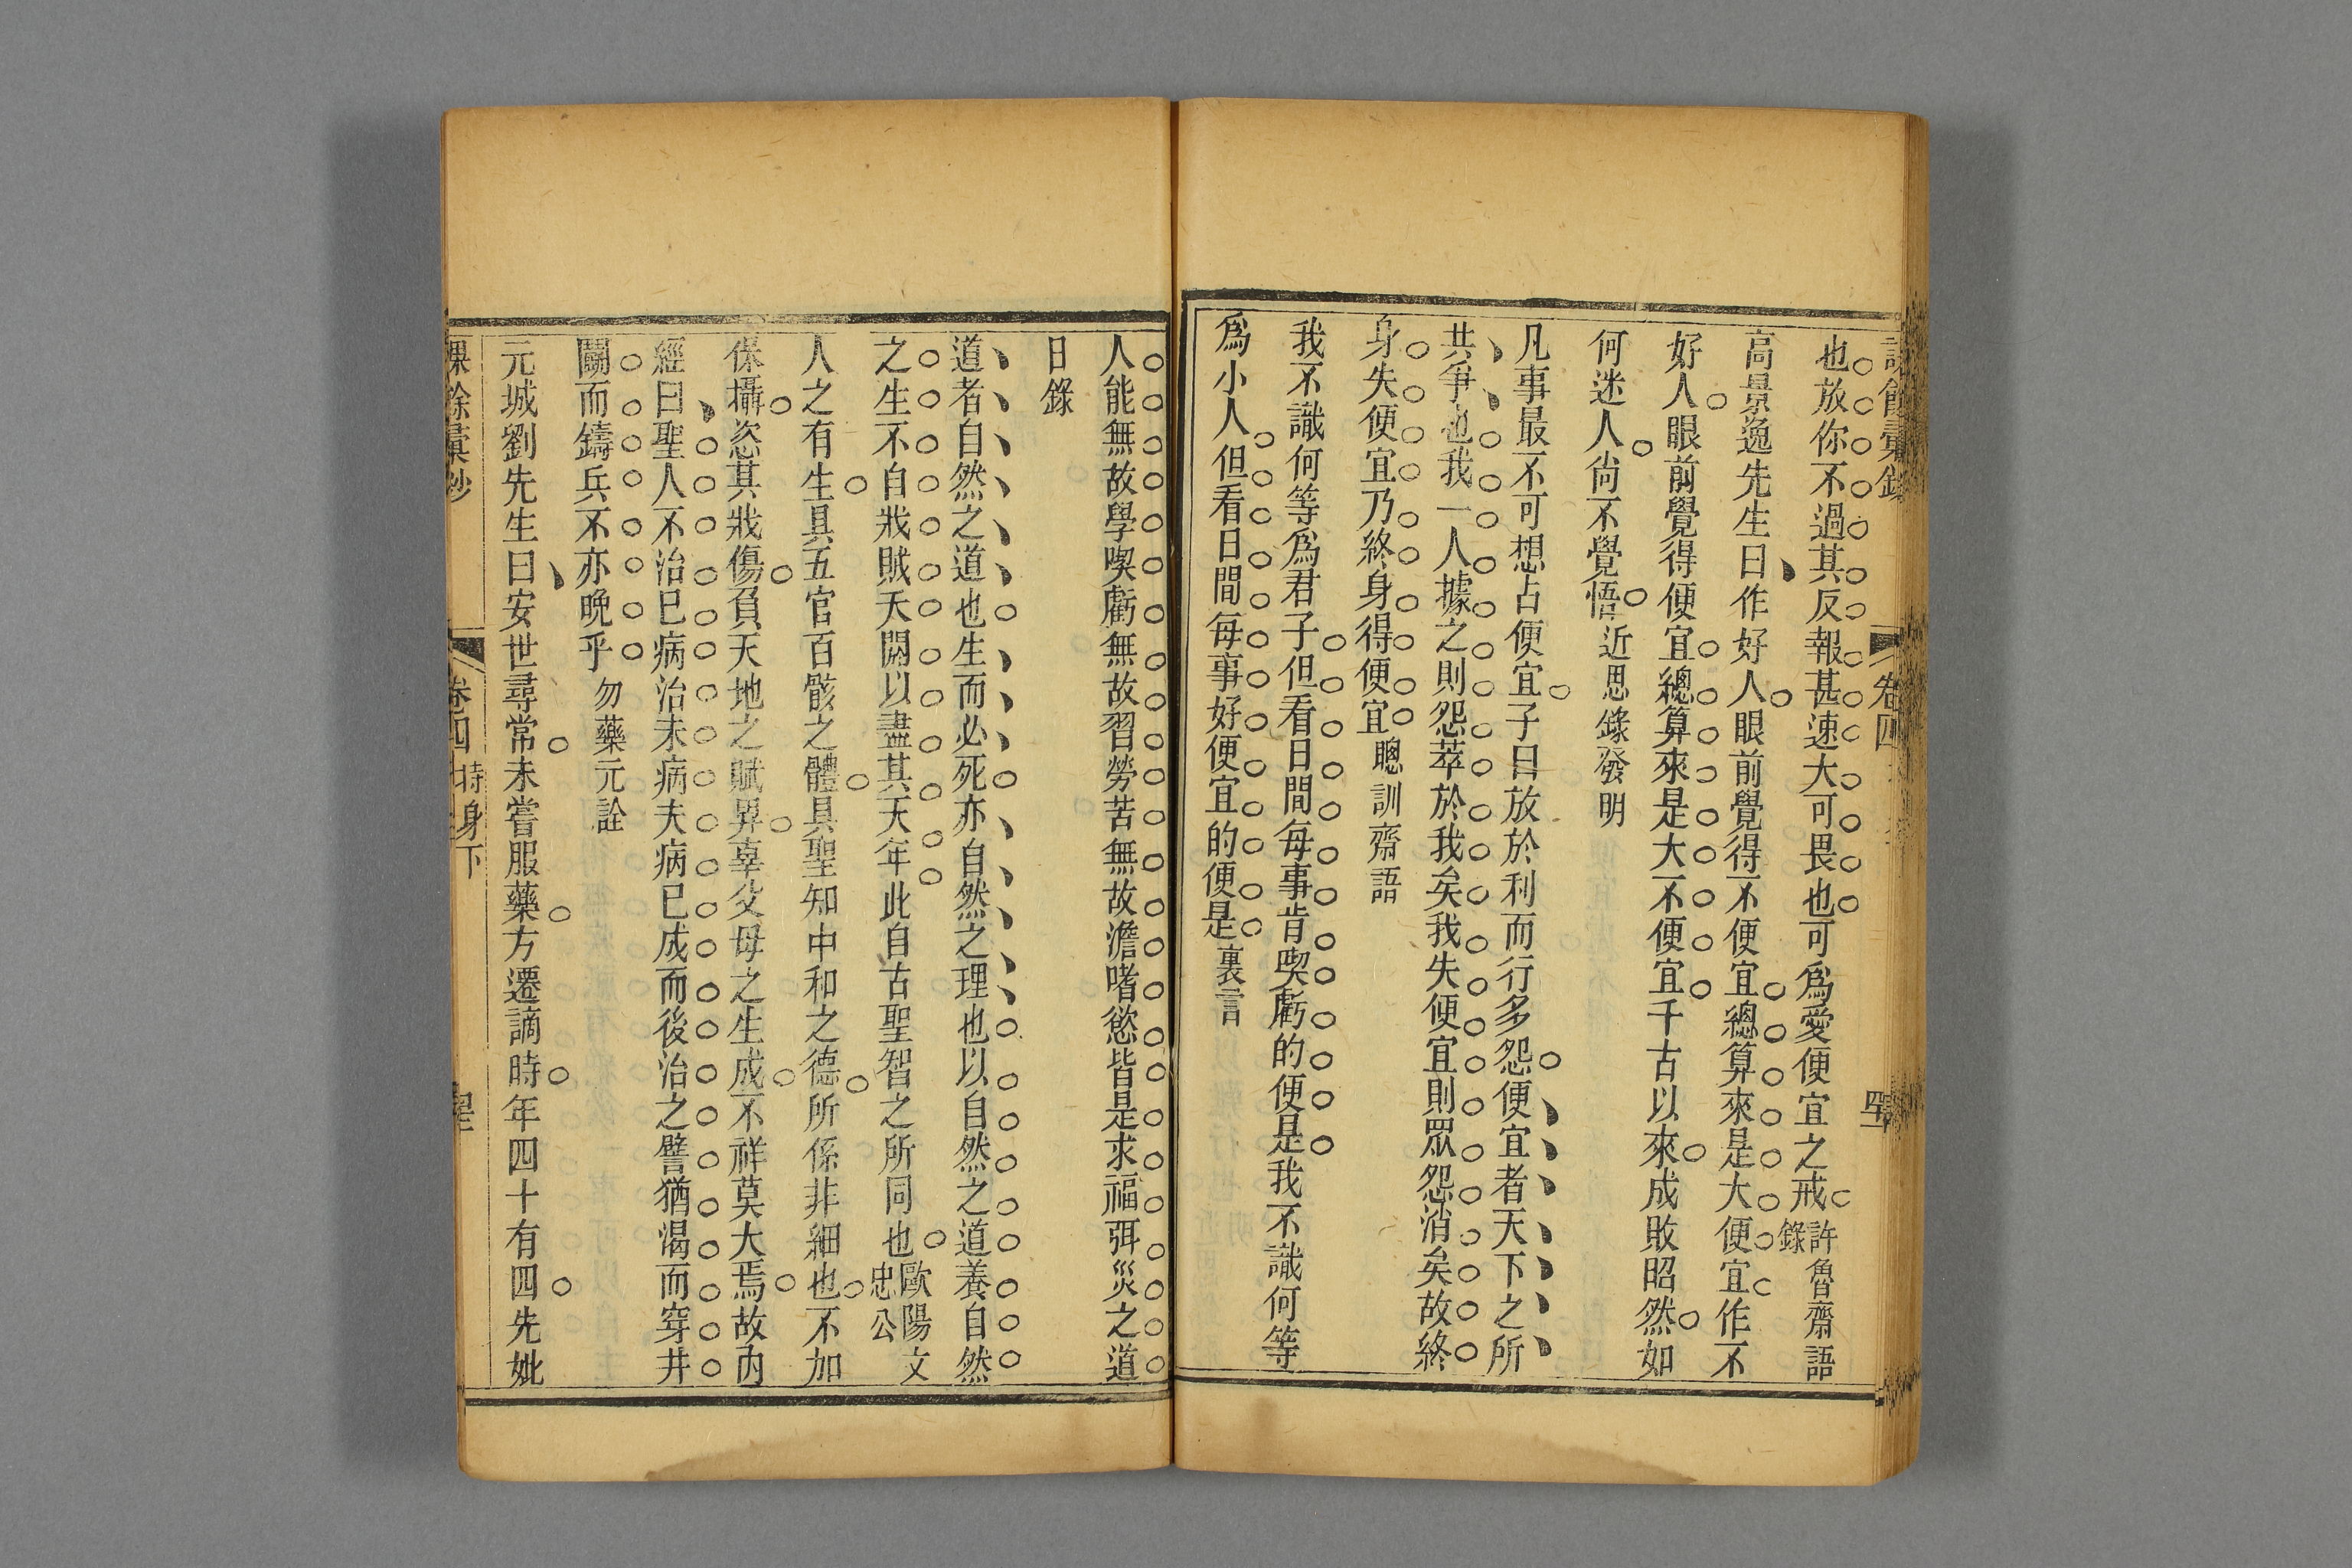 卷四
也放你不過其反報甚速大可畏也可爲愛便宜之戒許魯齋語錄
高景逸先生曰作好人眼前覺得不便宜總算來是大便宜作不
好人眼前覺得便宜總算來是大不便宜千古以來成敗昭然如
何迷人尙不覺悟近思錄發明
凡事最不可想占便宜子曰放於利而行多怨便宜者天下之所
共爭也我一人據之則怨萃於我矣我失便宜則眾怨消矣故終
身失便宜乃終身得便宜聰訓齋語
我不識何等爲君子但看日間每事肯喫虧的便是我不識何等
爲小人但看日間每事好便宜的便是裏言
人能無故學喫虧無故習勞苦無故澹嗜慾皆是求福弭災之道
日錄
道者自然之道也生而必死亦自然之理也以自然之道養自然
之生不自戕賊夭閼以盡其天年此自古聖智之所同也歐陽文忠公
人之有生具五官百骸之體具聖知中和之德所係非細也不加
保攝恣其戕傷負天地之賦畀辜父母之生成不祥莫大焉故內
經曰聖人不治已病治未病夫病已成而後治之譬猶渴而穿井
鬭而鑄兵不亦晚乎勿藥元詮
元城劉先生曰安世尋常未嘗服藥方遷謫時年四十有四先妣
課餘彙鈔
卷四
持身下